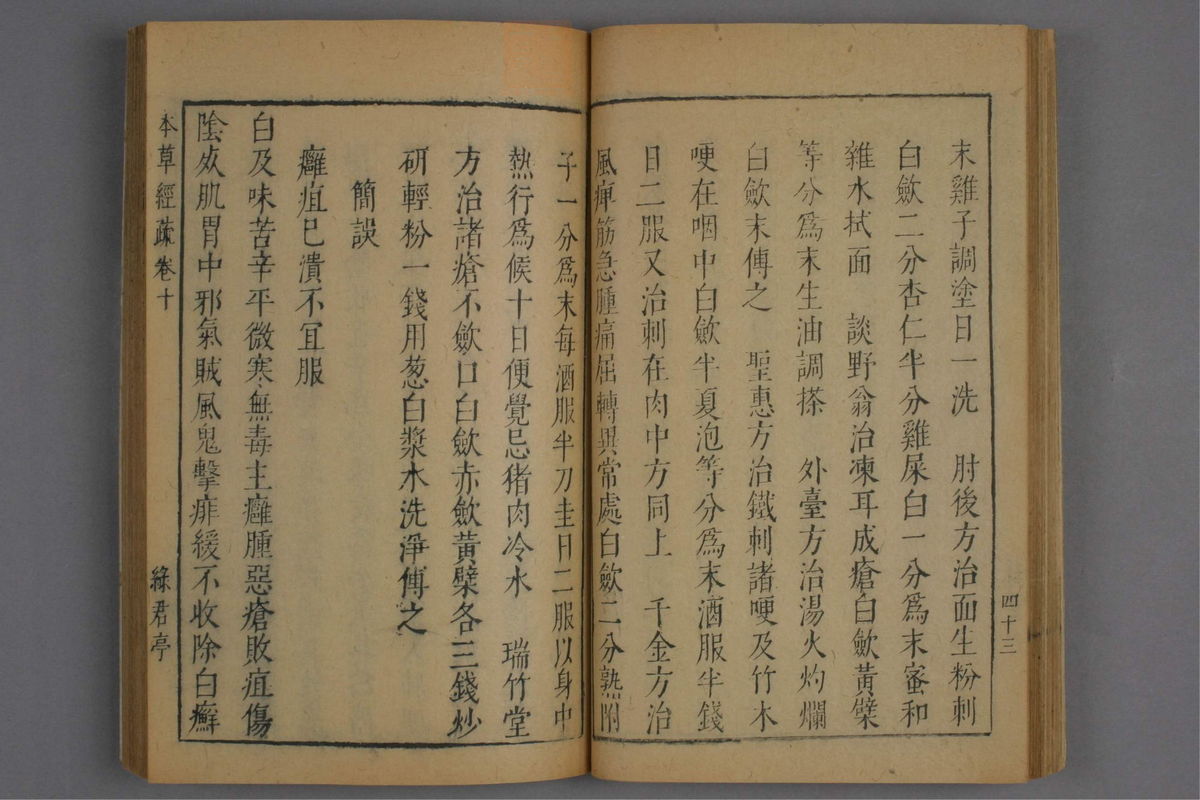 四十三
末雞子調塗日一洗　肘後方治面生粉刺
白歛二分杏仁半分雞屎白一分爲末蜜和
雜水拭面　談野翁治凍耳成瘡白歛黃蘗
等分爲末生油調搽　外臺方治湯火灼爛
白歛末傅之　聖惠方治鐵刺諸哽及竹木
哽在咽中白歛半夏泡等分爲末酒服半錢
日二服又治刺在肉中方同上　千金方治
風痺筋急腫痛屈轉異常處白歛二分熟附
子一分爲末每酒服半刀圭日二服以身中
熱行爲候十日便覺忌猪肉冷水　瑞竹堂
方治諸瘡不歛口白歛赤歛黃蘗各三錢炒
研輕粉一錢用葱白漿水洗淨傅之
簡誤
癰疽巳潰不宜服
白及味苦辛平微寒無毒主癰腫惡瘡敗疽傷
陰𣦸肌胃中邪氣賊風鬼擊痱緩不收除白癬
本草經疏卷十　綠君亭